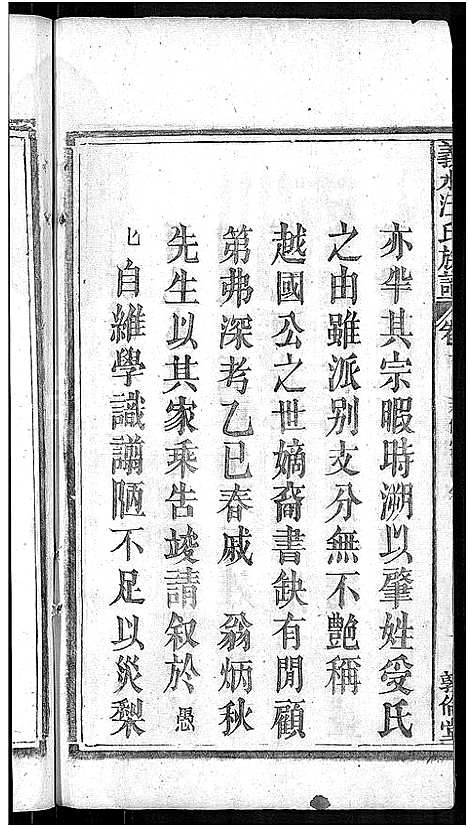 義水汪氏族譜 卷
敦倫堂
亦牟其宗暇時溯以肇姓受氏
之由雖派別支分無不艶稱
越國公之世嫡裔書缺有閒顧
第弗深考乙巳春戚 翁炳秋
先生以其家乘告竣請叙於 愚
匕自維學識謭陋不足以災梨